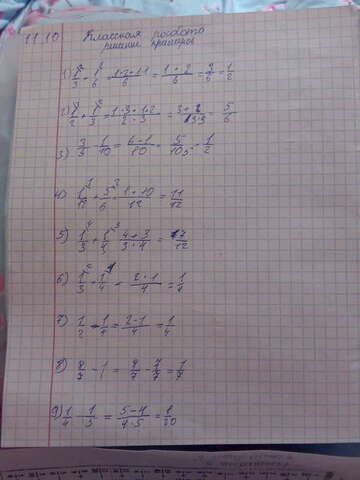 11.10 Классная работа
решение примеров
1) 1/3 + 1/6 = (1·2+1·1)/6 = (1+2)/6 = 3/6 = 1/2
2) 1/2 + 1/3 = (1·3+1·2)/(2·3) = (3+2)/(3·3) = 5/6
3) 3/5 - 1/10 = (6-1)/10 = 5/10 = 1/2
4) 1/12 + 5/6 = (1+10)/12 = 11/12
5) 1/3 + 1/4 = (4+3)/(3·4) = 7/12
6) 1/3 - 1/4 = (2·1)/4 = 1/4
7) 1/2 - 1/4 = (2-1)/4 = 1/4
8) 8/7 - 1 = 8/7 - 7/7 = 1/7
9) 1/4 - 1/5 = (5-4)/(4·5) = 1/20